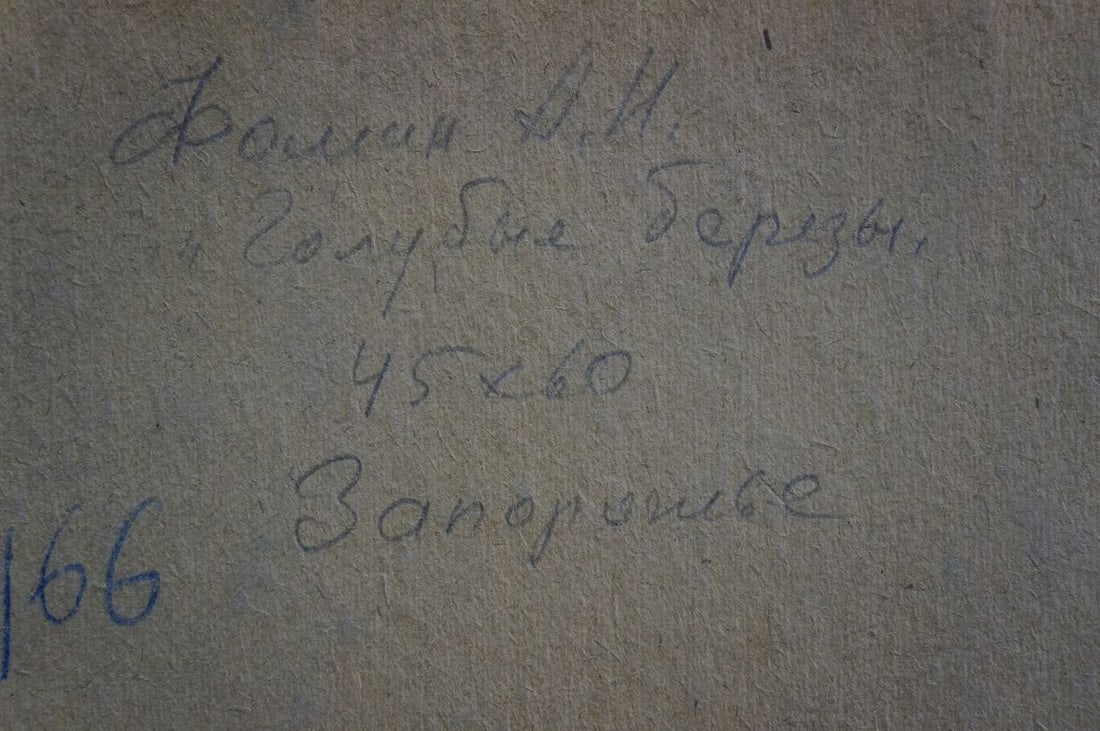 Фомин А.Н.
„Голубые березы"
45х60
Запорожье
166